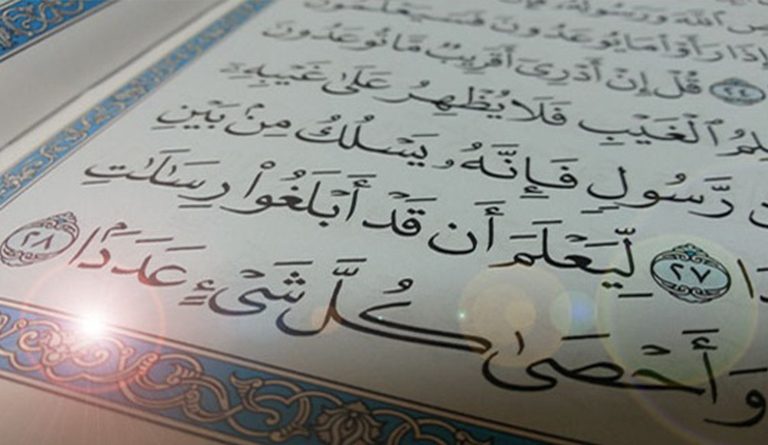 ٱللَّهَ وَرَسُولَهُۥ
إِذَا رَأَوْا۟ مَا يُوعَدُونَ فَسَيَعْلَمُونَ
٢٤ قُلْ إِنْ أَدْرِىٓ أَقَرِيبٌ مَّا تُوعَدُونَ
لِمُ ٱلْغَيْبِ فَلَا يُظْهِرُ عَلَىٰ غَيْبِهِۦٓ
ن رَّسُولٍ فَإِنَّهُۥ يَسْلُكُ مِنۢ بَيْنِ
دًا ٢٧ لِّيَعْلَمَ أَن قَدْ أَبْلَغُوا۟ رِسَـٰلَـٰتِ
وَأَحْصَىٰ كُلَّ شَىْءٍ عَدَدًۢا ٢٨